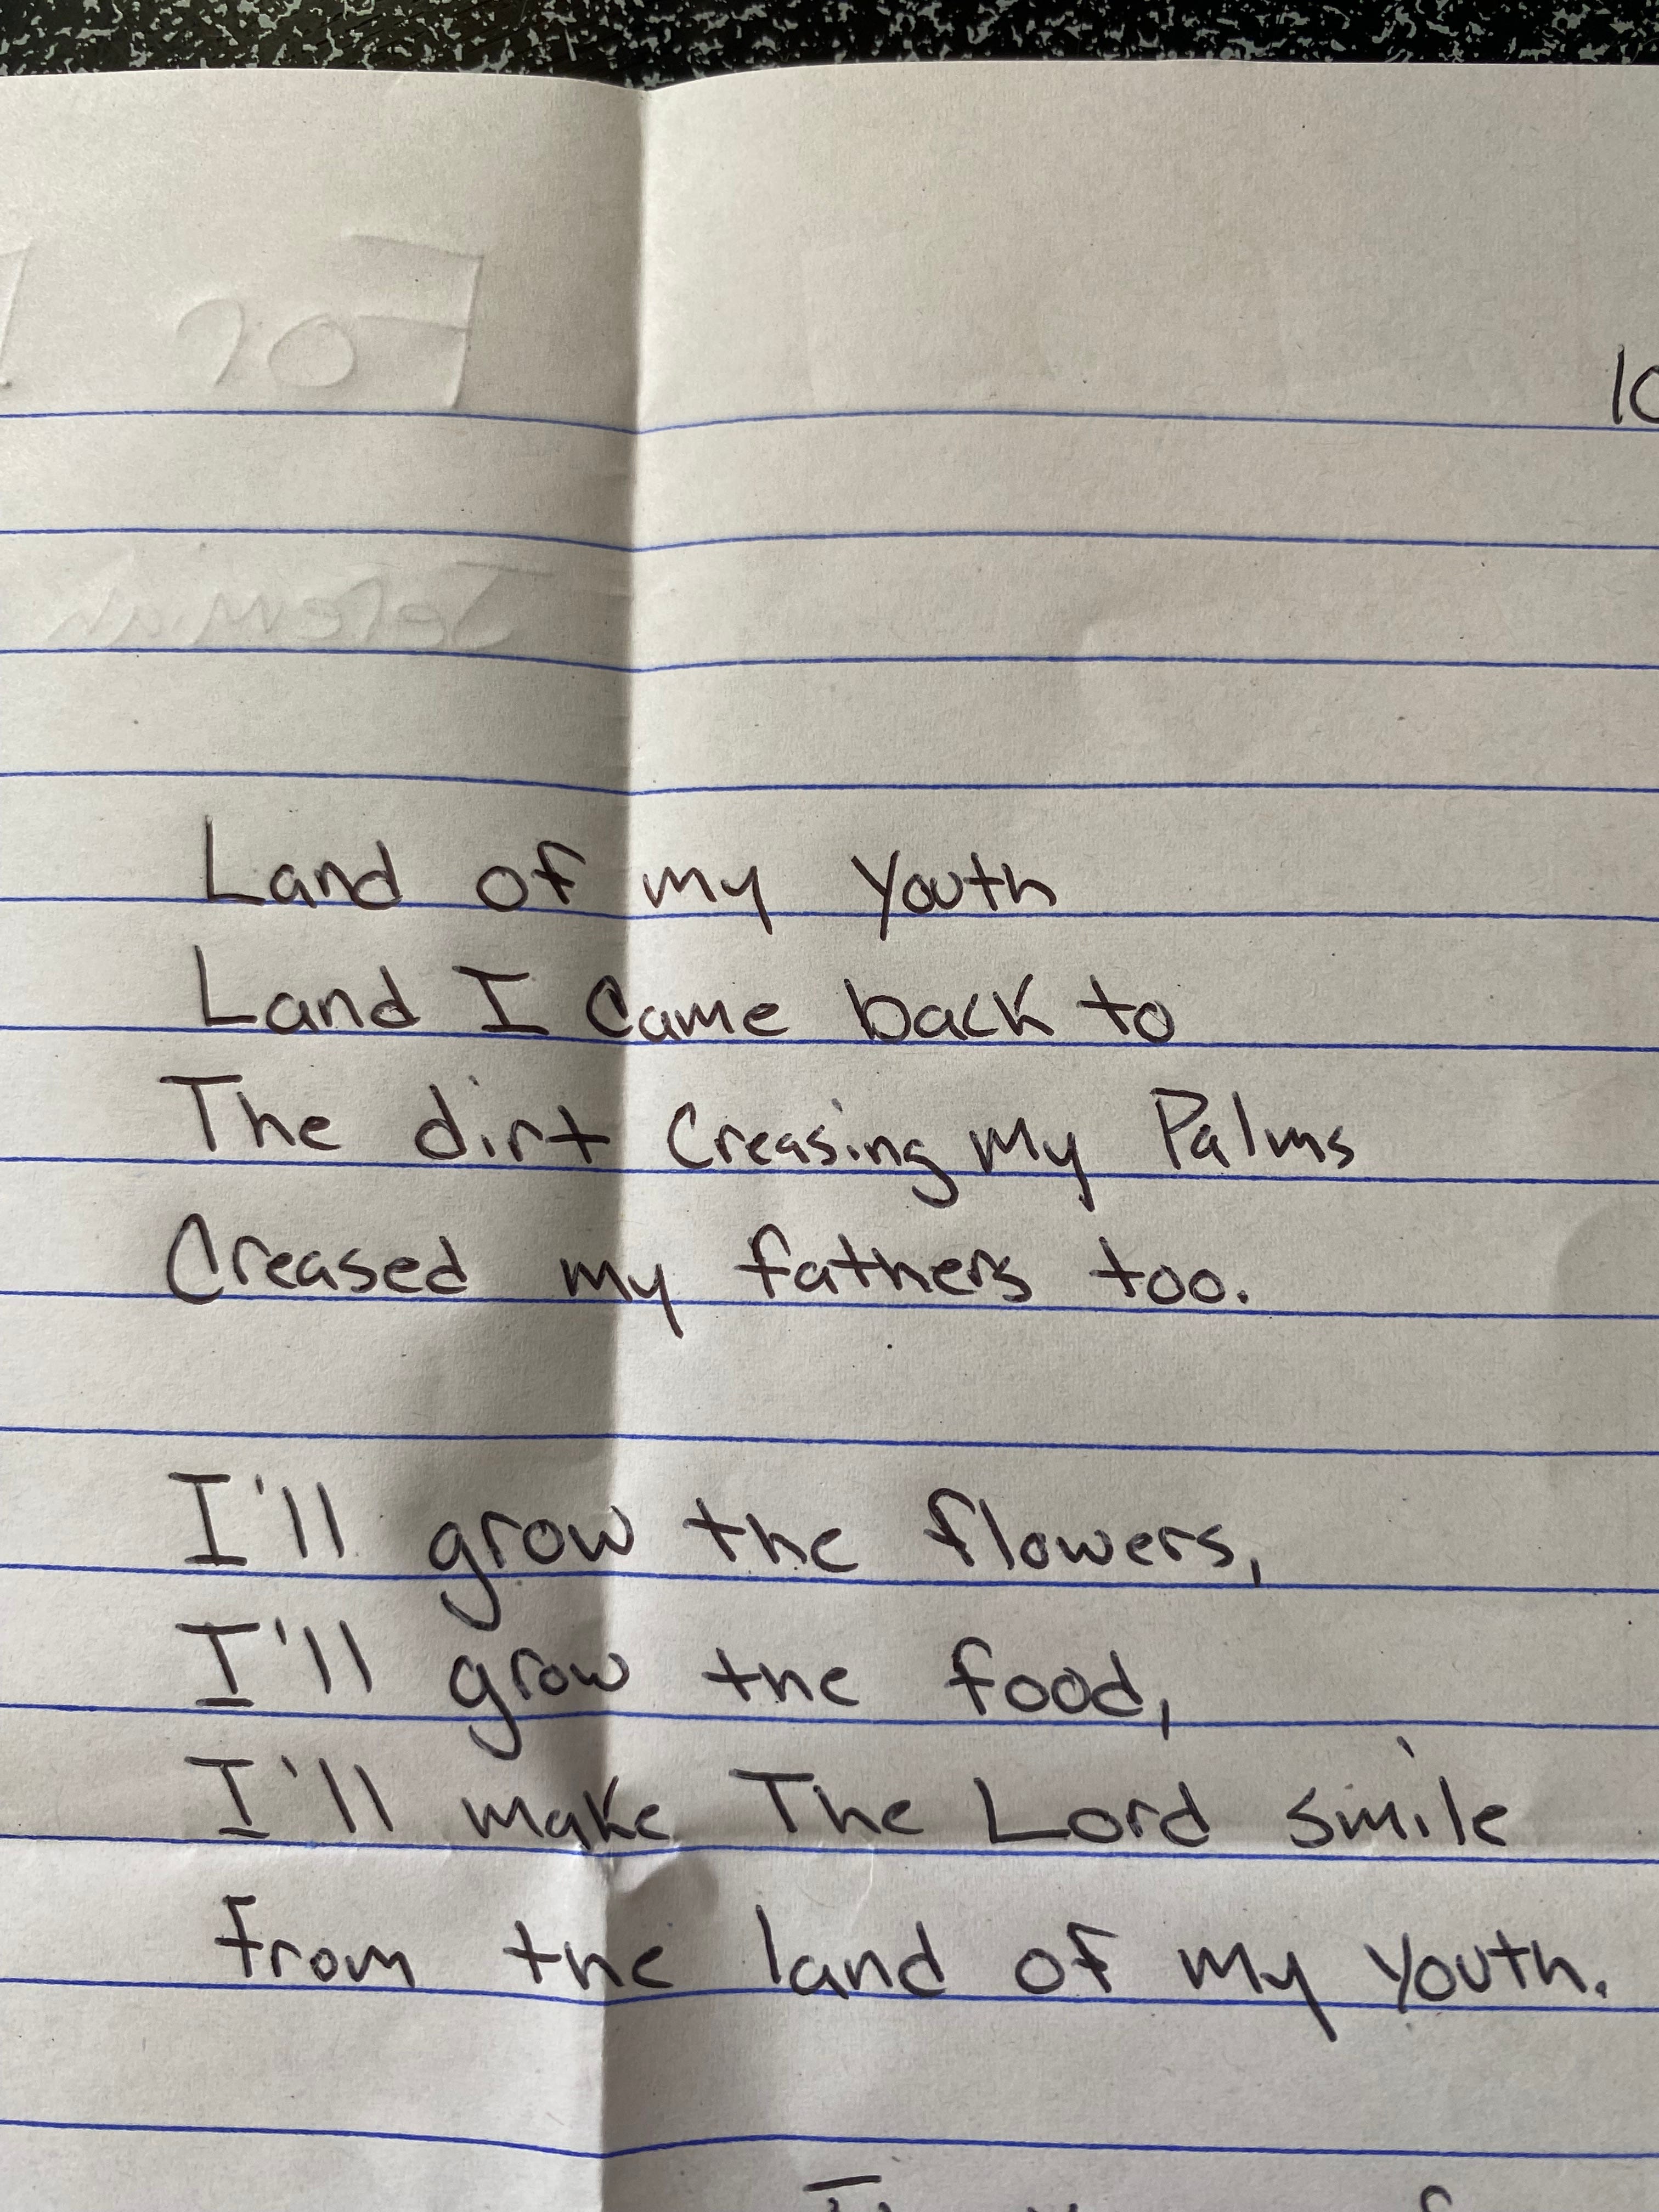 For
10
Jeremiah
Land of my Youth
Land I Came back to
The dirt Creasing My Palms
Creased my fathers too.
I'll grow the flowers,
I'll grow the food,
I'll make The Lord smile
from the land of my Youth.